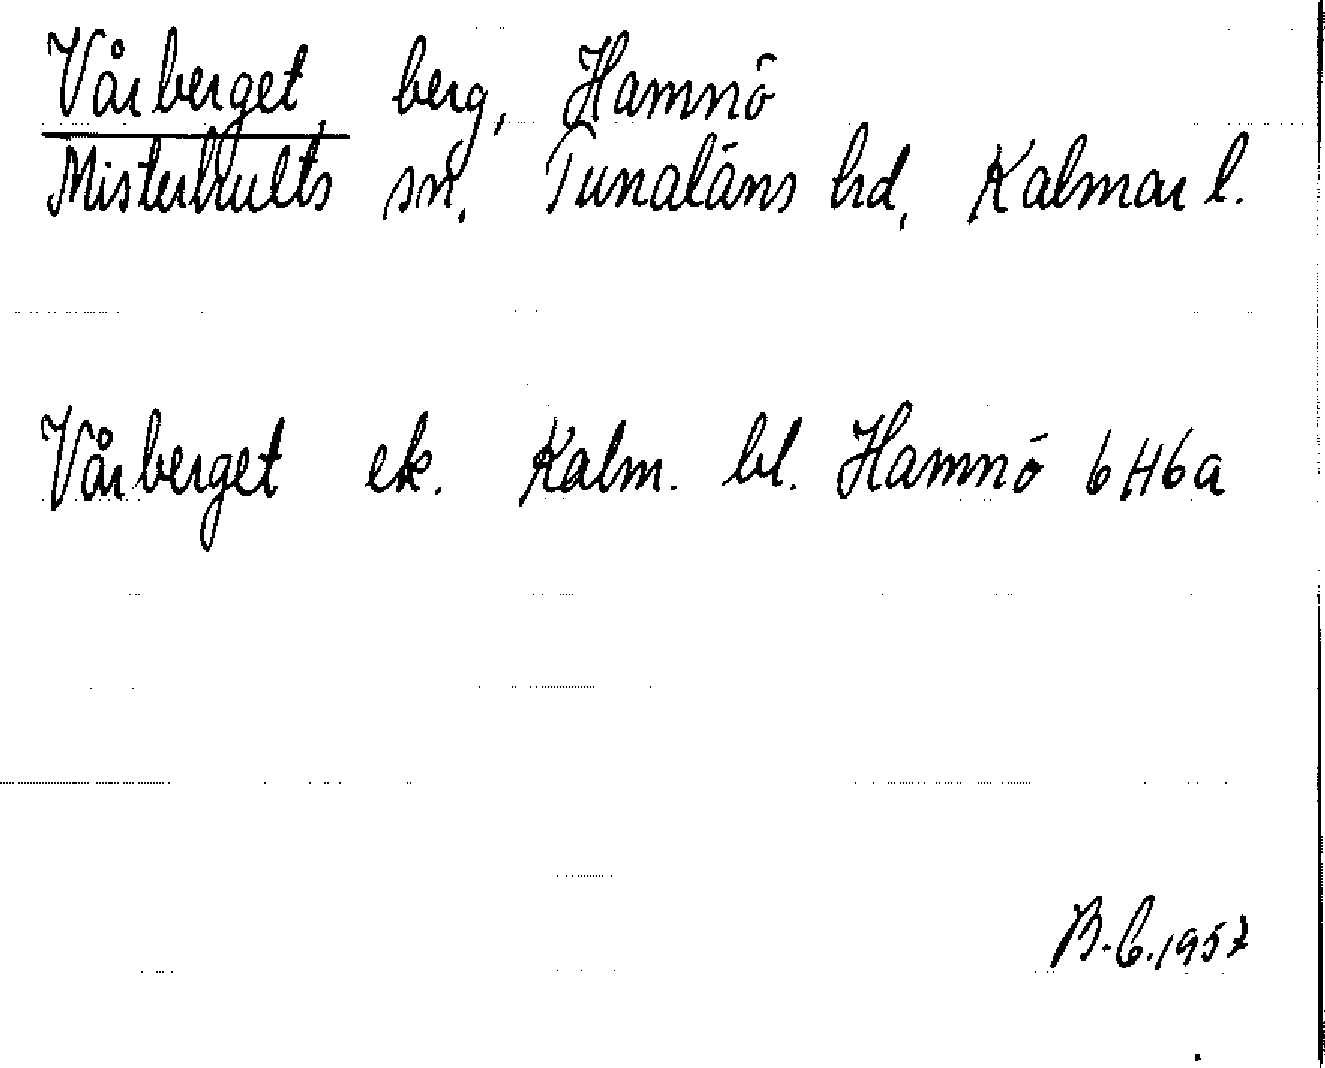 Vårberget berg, Hamnö
Misterhults sn. Tunaläns hd, Kalmar l.
Vårberget ek. Kalm. bl. Hamnö 6H6a
B.C.1957